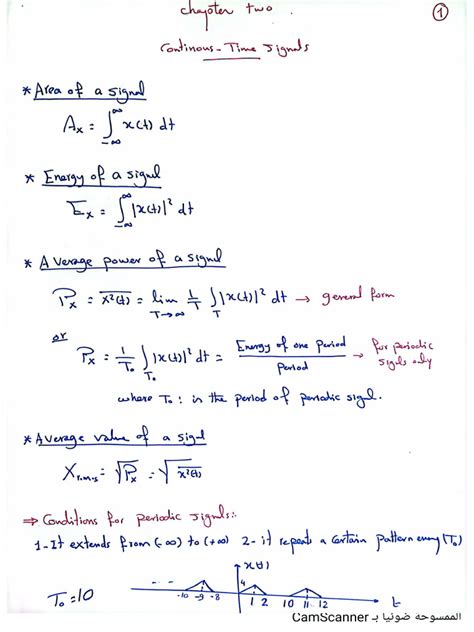 chapter two
①
Continous-Time Signals
* Area of a signal
Aₓ = ∫_{-∞}^{∞} x(t) dt
* Energy of a signal
Eₓ = ∫_{-∞}^{∞} |x(t)|² dt
* Average power of a signal
Pₓ = \overline{x²(t)} = lim_{T→∞} 1/T ∫_T |x(t)|² dt → general form
or
Pₓ = 1/T₀ ∫_{T₀} |x(t)|² dt = Energy of one Period / Period → for periodic signals only
where T₀ : is the period of periodic signal.
* Average value of a signal
X_{r.m.s} = √Pₓ = √\overline{x²(t)}
⇒ Conditions for periodic signals:
1- It extends from (-∞) to (+∞) 2- it repeats a certain pattern every (T₀)
x(t)
T₀ = 10
4
-10 -9 -8 1 2 10 11 12
الممسوحة ضوئيا بـ CamScanner